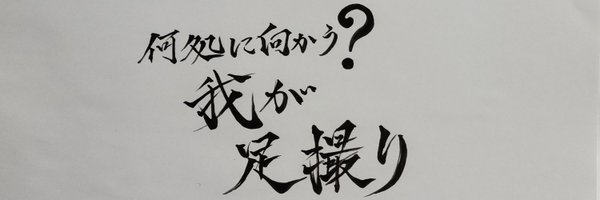 何処に向かう?
我が
足撮り